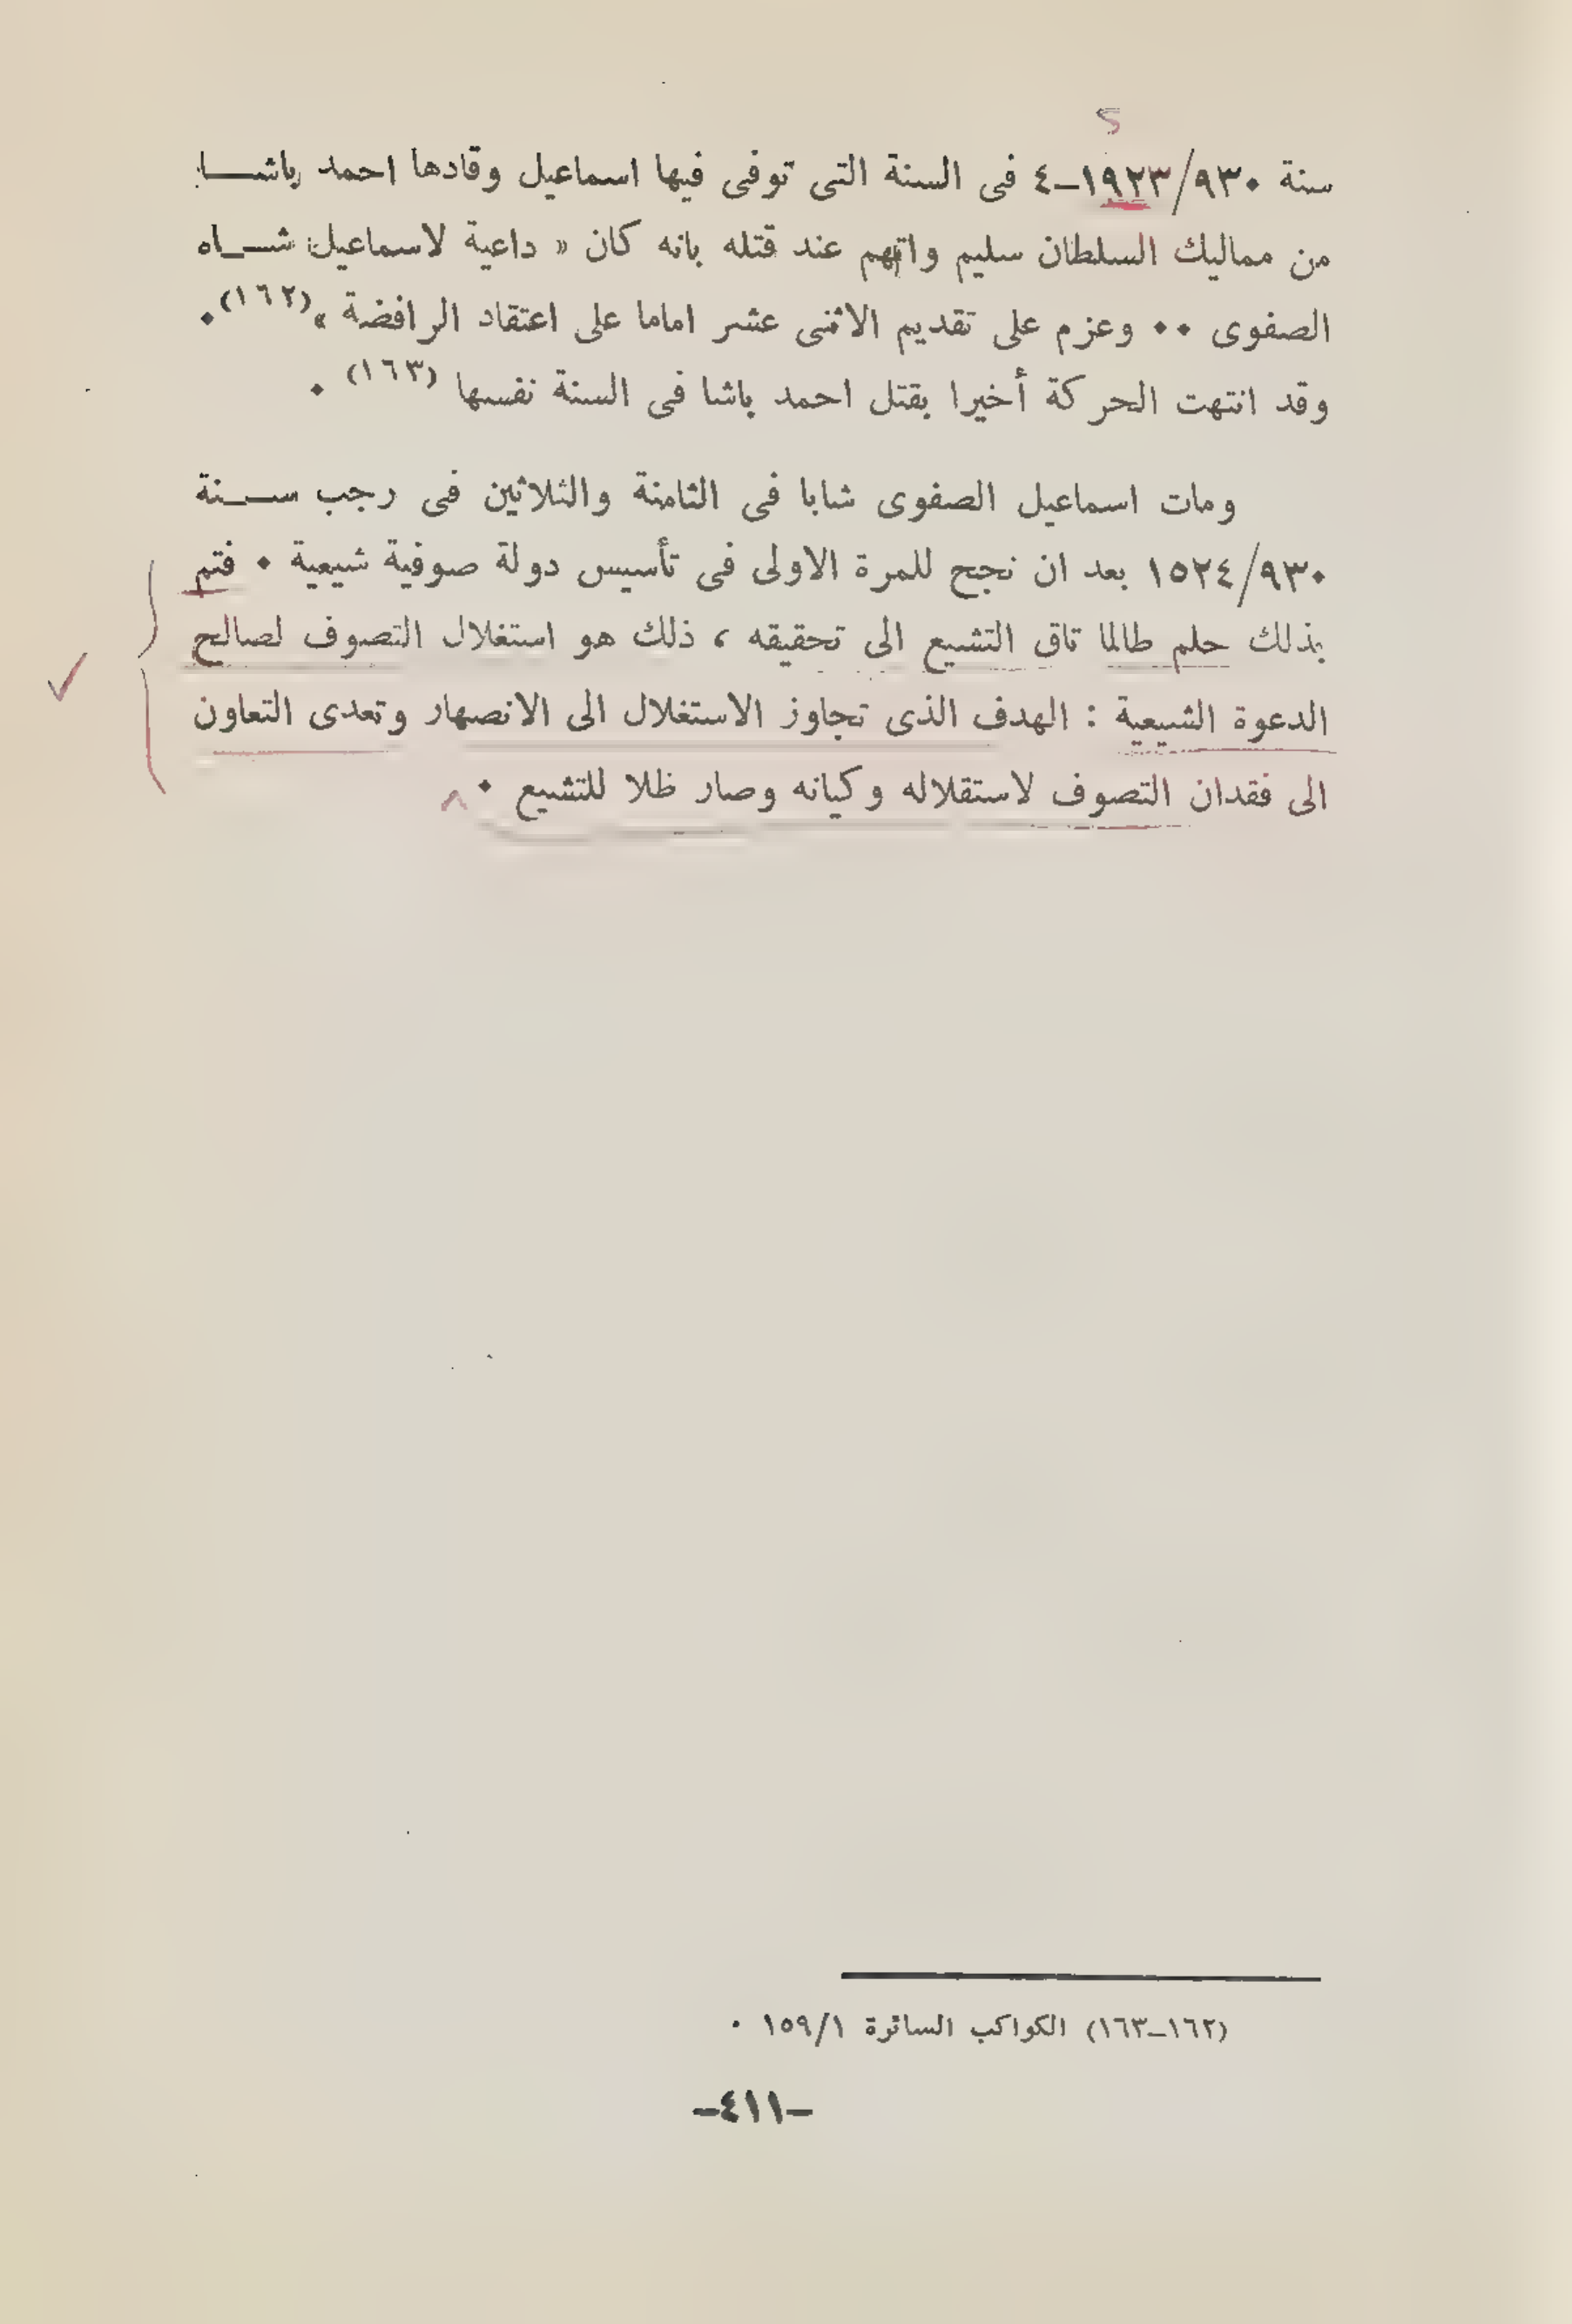 سنة ٩٣٠/١٩٢٣-٤ فى السنة التى توفى فيها اسماعيل وقادها احمد باشـــا
من مماليك السلطان سليم واتهم عند قتله بانه كان « داعية لاسماعيل شـــاه
الصفوى ٠٠ وعزم على تقديم الاثنى عشر اماما على اعتقاد الرافضة »(١٦٢)٠
وقد انتهت الحركة أخيرا بقتل احمد باشا فى السنة نفسها (١٦٣) ٠
ومات اسماعيل الصفوى شابا فى الثامنة والثلاثين فى رجب ســـنة
١٥٢٤/٩٣٠ بعد ان نجح للمرة الاولى فى تأسيس دولة صوفية شيعية ٠ فتم
بذلك حلم طالما تاق التشيع الى تحقيقه ، ذلك هو استغلال التصوف لصالح
الدعوة الشيعية : الهدف الذى تجاوز الاستغلال الى الانصهار وتعدى التعاون
الى فقدان التصوف لاستقلاله وكيانه وصار ظلا للتشيع ٠
(١٦٢-١٦٣) الكواكب السائرة ١٥٩/١ ٠
-٤١١-